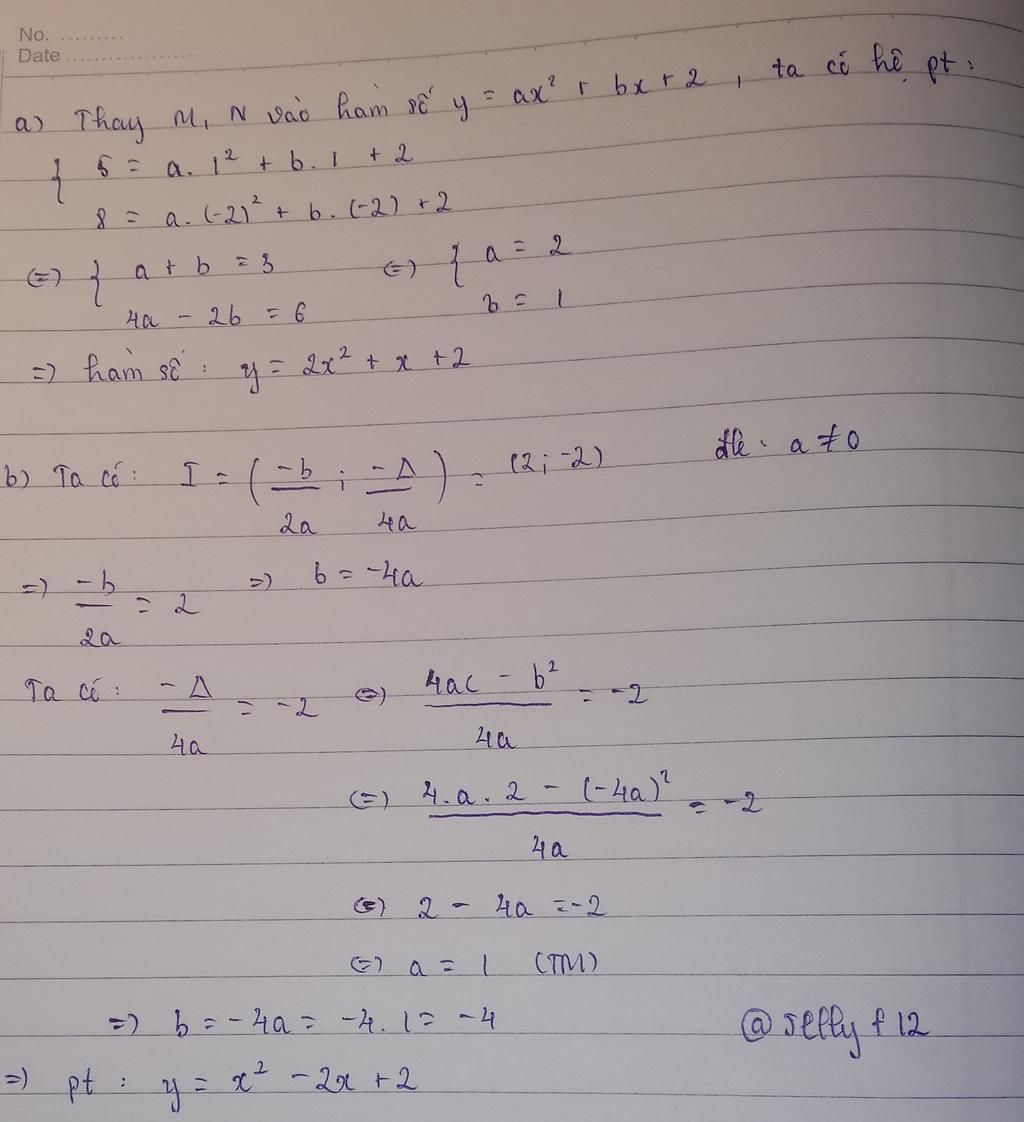 No. .........
Date ...................
a) Thay M, N vào hàm số y = ax² + bx + 2, ta có hệ pt:
{ 5 = a.1² + b.1 + 2
8 = a.(-2)² + b.(-2) + 2
<=> { a + b = 3 <=> { a = 2
4a - 2b = 6 b = 1
=> hàm số: y = 2x² + x + 2
b) Ta có: I = (-b/2a ; -Δ/4a) = (2; -2) đk: a ≠ 0
=> -b/2a = 2 => b = -4a
Ta có: -Δ/4a = -2 <=> (4ac - b²)/4a = -2
<=> (4.a.2 - (-4a)²)/4a = -2
<=> 2 - 4a = -2
<=> a = 1 (TM)
=> b = -4a = -4.1 = -4
=> pt: y = x² - 2x + 2